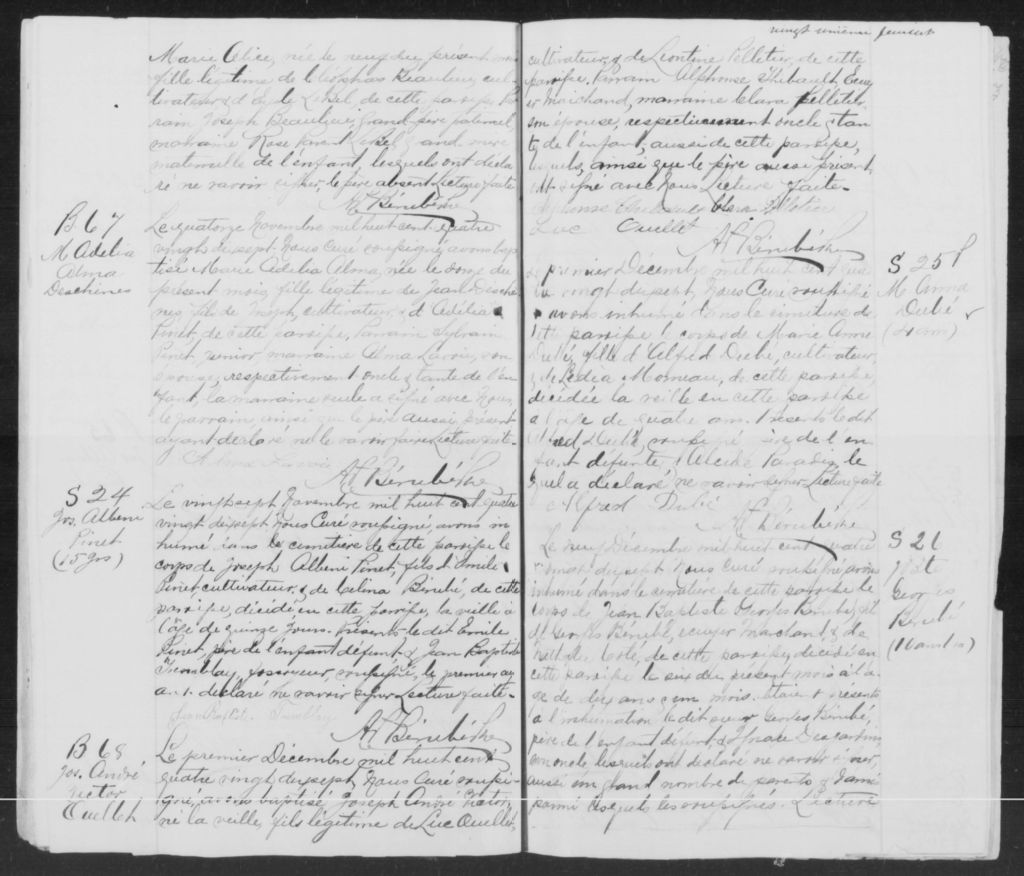 Marie Alice, née le neuf du présent mois
fille légitime de Cléophas Beaulieu, cul-
tivateur & d'Lebel, de cette paroisse. Par-
rain Joseph Beaulieu, grand-père paternel,
marraine Rose Lebel, grand mère
maternelle de l'enfant, lesquels ont décla
ré ne savoir signer, le père absent. Lecture faite
Bérubé Ptre
B 67
M Adelia
Alma
Deschènes
Le quatorze Novembre mil huit cent quatre
vingt dix sept, Nous Curé soussigné avons bap
tisé Marie Adelia Alma, née le douze du
présent mois, fille légitime de Jean Desche
nes fils de Majh, cultivateur, & d'Adélia
Pinet, de cette paroisse. Parrain Sylvain
Pinet, senior, marraine Alma Lavoie, son
épouse, respectivement oncle & tante de l'en
fant, la marraine seule a signé avec Nous,
le parrain ainsi que le père aussi présent
ayant déclaré ne le savoir faire. Lecture faite-
Alma Lavoie
Bérubé Ptre
S 24
Jos. Albeni
Pinet
(15 jrs)
Le vingt sept Novembre mil huit cent quatre
vingt dix sept Nous Curé soussigné, avons in
humé dans le cimetière de cette paroisse le
corps de Joseph Albeni Pinet, fils d'Emile
Pinet cultivateur, & de Celina Bérubé, de cette
paroisse, décédé en cette paroisse, la veille à
l'âge de quinze jours. Présents le dit Emile
Pinet, père de l'enfant défunt & Jean Baptiste
Tremblay, soussigné, le premier ay
ant déclaré ne savoir signer. Lecture faite-
Jean Bapt. Tremblay
Bérubé Ptre
B 68
Jos. André
Hector
Ouellet
Le premier Décembre mil huit cent
quatre vingt dix sept, Nous Curé soussi-
gné, avons baptisé Joseph André Hector,
né la veille, fils légitime de Luc Ouellet,
vingt unième feuillet
cultivateur, & de Léontine Pelletier, de cette
paroisse. Parrain Alphonse Thibault Ecuy
er Marchand, marraine Clara Pelletier,
son épouse, respectivement oncle & tan
te de l'enfant, aussi de cette paroisse,
lesquels, ainsi que le père aussi présent,
ont signé avec Nous. Lecture faite-
Alphonse Thibault Clara Pelletier
Luc Ouellet
Bérubé Ptre
S 25
M. Anna
Dubé
(4 ans)
Le premier Décembre mil huit cent qua
tre vingt dix sept, Nous Curé soussigné
avons inhumé dans le cimetière de
cette paroisse le corps de Marie Anne
Dubé, fille d'Alfred Dubé, cultivateur
& de Lédia Moreau, de cette paroisse,
décédée la veille en cette paroisse
à l'âge de quatre ans. Présents le dit
Alfred Dubé, soussigné père de l'en
fant défunte, & Alcide Paradis, le
quel a déclaré ne savoir signer. Lecture faite
Alfred Dubé
Bérubé Ptre
S 26
J. Bte
Georges
Bérubé
(10 ans 1 m)
Le neuf Décembre mil huit cent quatre
vingt dix sept, Nous Curé soussigné avons
inhumé dans le cimetière de cette paroisse le
corps de Jean Baptiste Georges Bérubé, fils
de Georges Bérubé, écuyer Marchand, & de
Coté, de cette paroisse, décédé en
cette paroisse le six du présent mois à l'â
ge de dix ans & un mois. Étaient présents
à l'inhumation le dit sieur Georges Bérubé,
père de l'enfant défunt, & Horace Descarreau,
son oncle lesquels ont déclaré ne savoir signer,
aussi un grand nombre de parents & d'amis
parmi lesquels les soussignés. Lecture